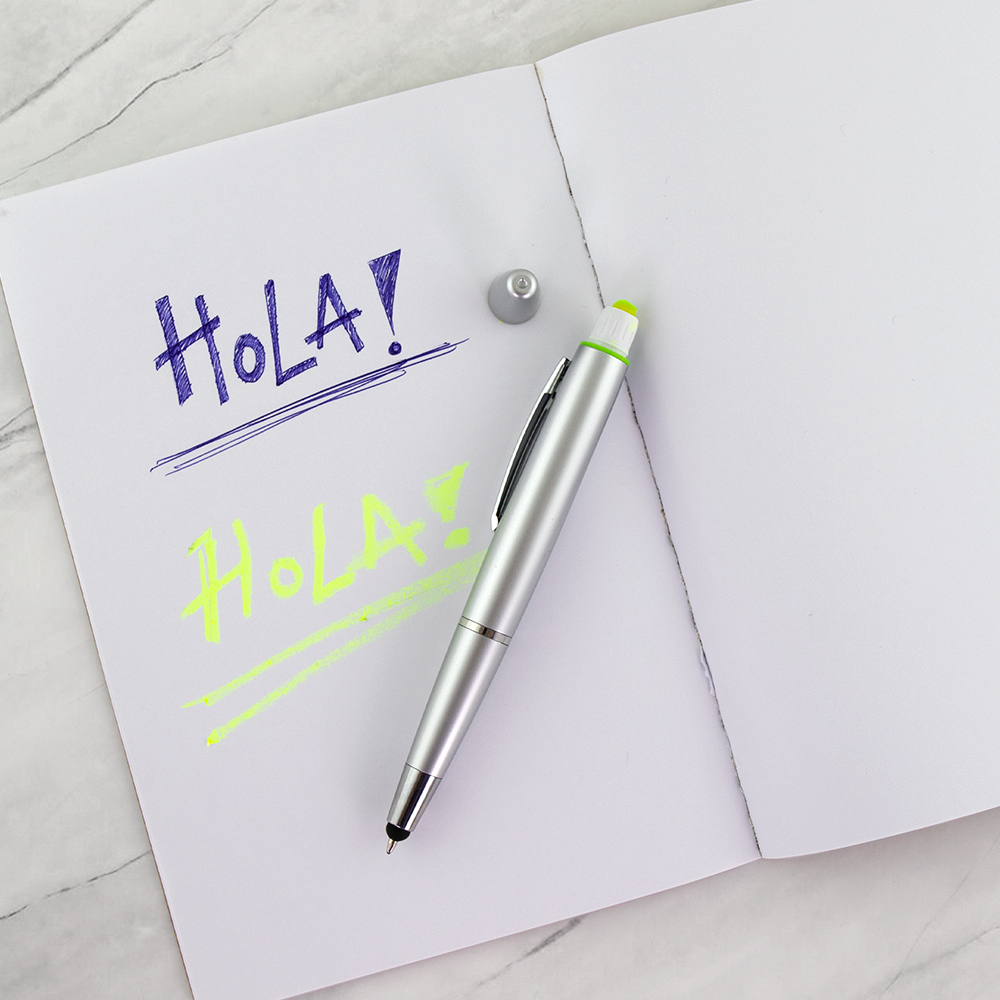 HoLA!
HoLA!